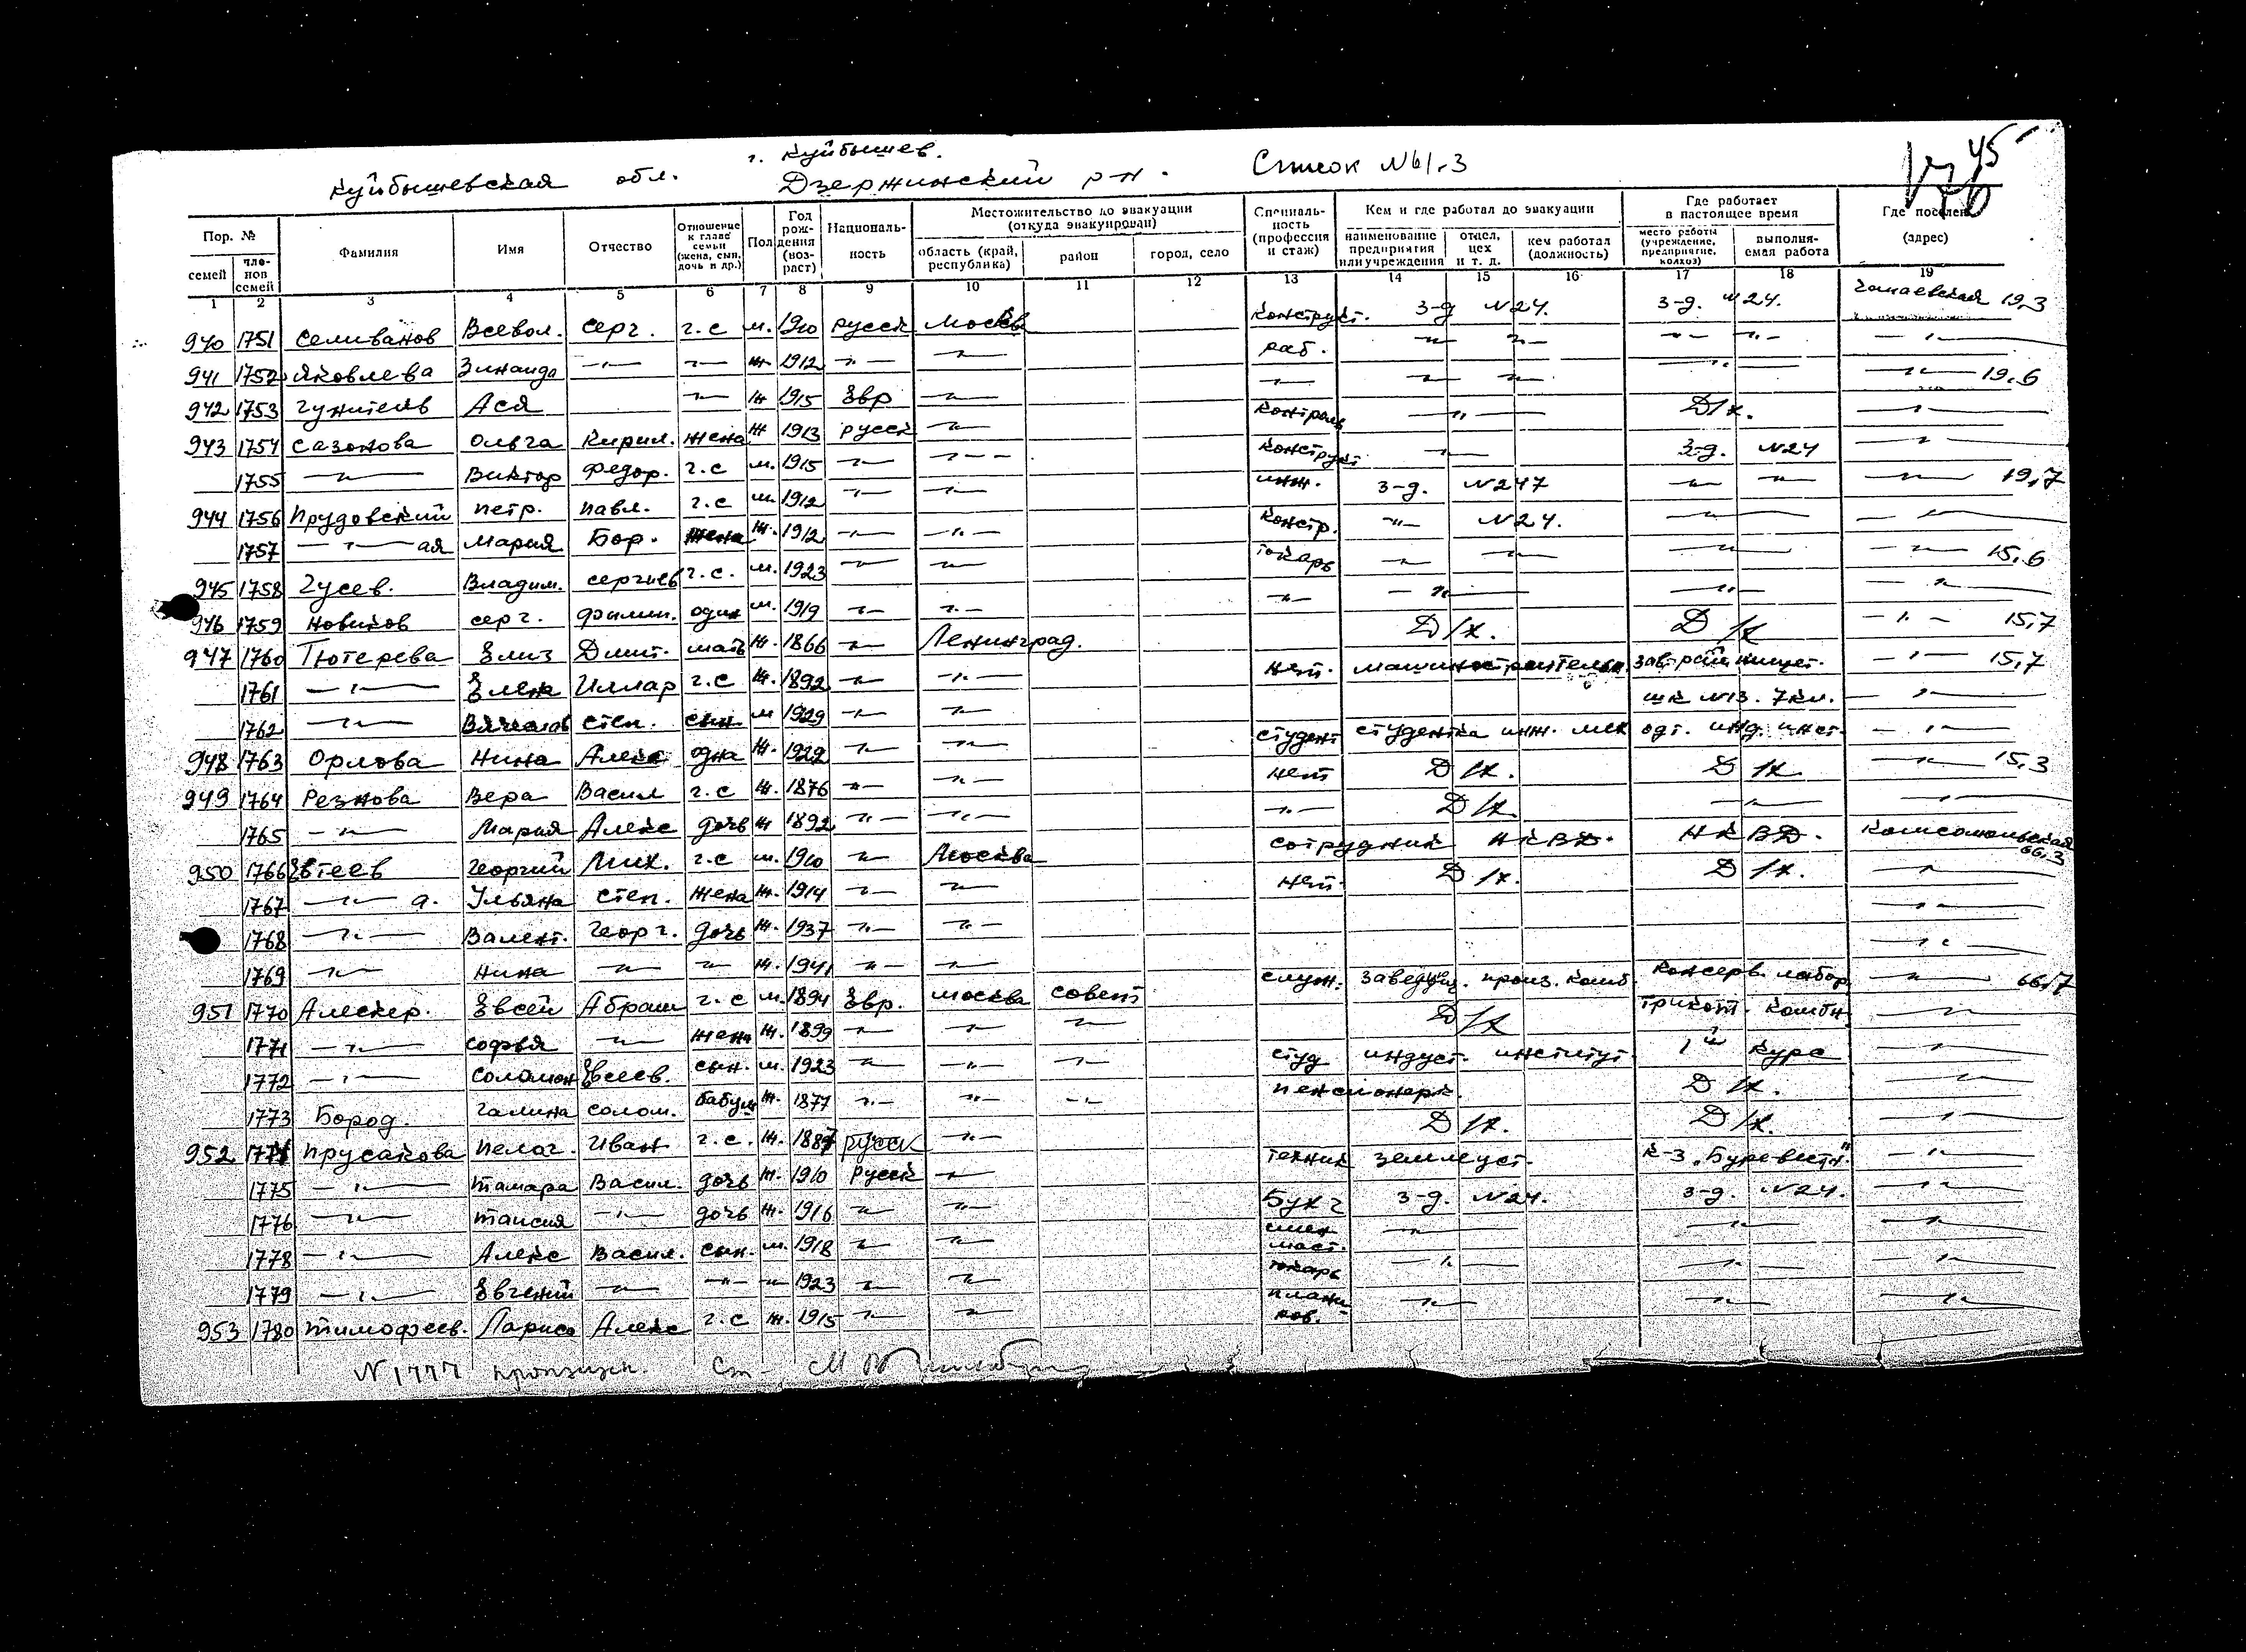 45
76
г. Куйбышев.
Куйбышевская обл. Дзержинский р-н. Список № 61-3
Пор. № Фамилия Имя Отчество Отношение к главе семьи (жена, сын, дочь и др.) Пол Год рождения (возраст) Национальность Местожительство до эвакуации (откуда эвакуирован) Специальность (профессия и стаж) Кем и где работал до эвакуации Где работает в настоящее время Где поселен (адрес)
семей членов семей область (край, республика) район город, село наименование предприятия или учреждения отдел, цех и т. д. кем работал (должность) место работы (учреждение, предприятие, колхоз) выполняемая работа
1 2 3 4 5 6 7 8 9 10 11 12 13 14 15 16 17 18 19
940 1751 Селиванов Всевол. Серг. г.с м. 1910 русск Москва Конструкт. з-д N24. з-д. N24. Чапаевская 19,3
941 1752 Яковлева Зинаида —"— —"— ж 1912 —"— —"— раб. —"— —"— —"— —"— —"—
942 1753 Гунитель Ася —"— ж 1915 Евр —"— —"— —"— —"— —"— —"— 19,6
943 1754 Сазонова Ольга Кирил. жена ж 1913 русск —"— Контроль —"— Д/х. —"—
1755 —"— Виктор Федор. г.с м. 1915 —"— —"— Конструкт —"— з-д. N24 —"—
944 1756 Прудовский Петр. Павл. г.с м. 1912 —"— —"— инж. з-д. N247 —"— —"— —"— 19,7
1757 —"— ая Мария Бор. жена ж. 1912 —"— —"— Констр. —"— N24. —"— —"—
945 1758 Гусев. Владим. Сергиев г.с. м. 1923 —"— —"— токарь —"— —"— —"— —"— 15,6
946 1759 Новиков Серг. Филип. один м. 1919 —"— —"— —"— —"— —"— —"—
947 1760 Тютерева Елиз Дмит. мать ж. 1866 —"— Ленинград. Д/х. Д/х —"— 15,7
1761 —"— Елена Иллар г.с ж. 1892 —"— —"— нет. машиностроительн. зав. —"— 15,7
1762 —"— Вячеслав Степ. сын м 1929 —"— —"— шк N13. 7кл. —"—
948 1763 Орлова Нина Алекс одна ж. 1922 —"— —"— студент студентка инж. мех инд. инст. —"—
949 1764 Резнова Вера Васил г.с ж. 1876 —"— —"— нет Д/х. Д/х —"— 15,3
1765 —"— Мария Алекс дочь ж 1892 —"— —"— Д/х. —"— —"—
950 1766 Евтеев Георгий Мих. г.с м. 1910 —"— Москва сотрудник НКВД. НКВД. Комсомольская 66,3
1767 —"— а. Ульяна Степ. жена ж. 1914 —"— —"— нет. Д/х. Д/х. —"—
1768 —"— Валент. Георг. дочь ж. 1937 —"— —"— —"—
1769 —"— Нина —"— —"— ж. 1941 —"— —"— —"—
951 1770 Алескер. Евсей Абрам г.с м. 1894 Евр. Москва Совет служ. заведующ. произ. комб. Консерв. лабор. —"— 66,7
1771 —"— Софья —"— жена ж. 1899 —"— —"— —"— Д/х трикот. комбн. —"—
1772 —"— Соломон Евсеев. сын. м. 1923 —"— —"— —"— студ индуст. институт. 1й курс —"—
1773 Бород. Галина Солом. бабуш ж. 1877 —"— —"— —"— пенсионерк. Д/х. —"—
952 1774 Прусакова Пелаг. Иван г.с. ж. 1887 русск —"— Д/х. Д/х. —"—
1775 —"— Тамара Васил. дочь ж. 1910 русск —"— техник землеуст. к-з „Буревестн" —"—
1776 —"— Таисия —"— дочь ж. 1916 —"— —"— Бухг з-д. N24. з-д. N24. —"—
1778 —"— Алекс Васил. сын. м. 1918 —"— —"— смен маст. —"— —"— —"—
1779 —"— Евгений —"— —"— —"— 1923 —"— —"— токарь —"— —"— —"—
953 1780 Тимофеев. Лариса Алекс г.с ж. 1915 —"— —"— планиров. —"— —"— —"—
N 1777 пропущен. Ст.